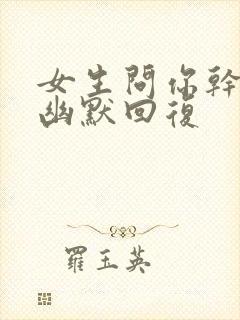 女生問你幹
幽默回復
羅玉英